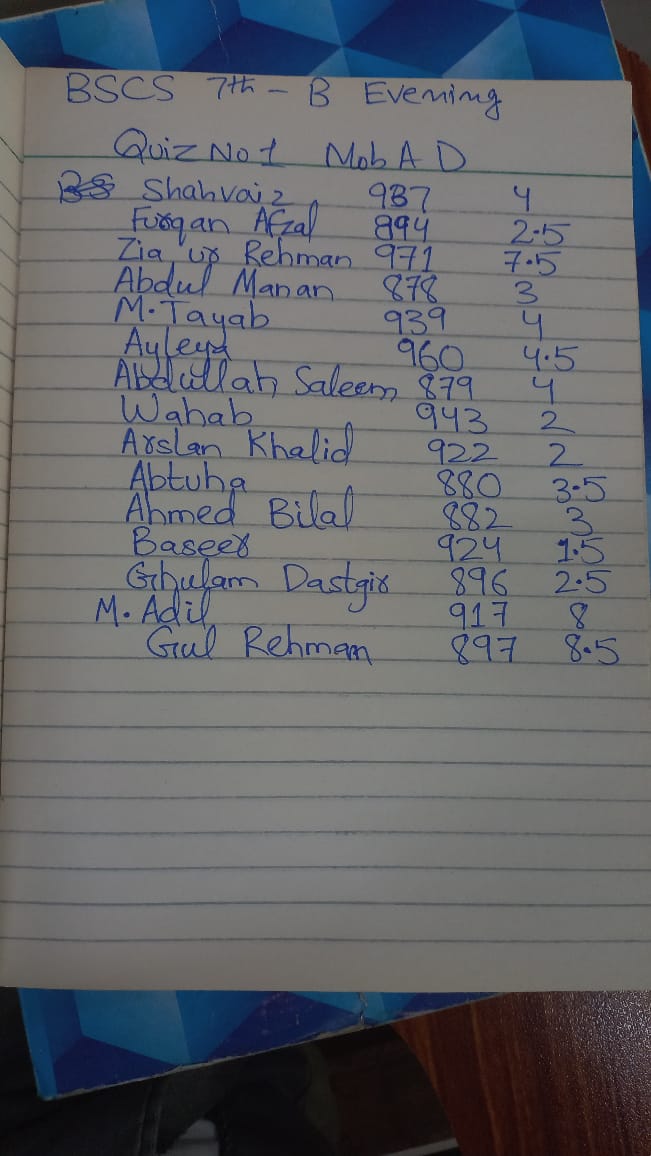 BSCS 7th - B Evening
Quiz No 1 Mob A D
Shahvaiz 937 4
Furqan Afzal 894 2.5
Zia ur Rehman 971 7.5
Abdul Manan 878 3
M. Tayab 939 4
Ayleya 960 4.5
Abdullah Saleem 879 4
Wahab 943 2
Arslan Khalid 922 2
Abtuha 880 3.5
Ahmed Bilal 882 3
Baseer 924 1.5
Ghulam Dastgir 896 2.5
M. Adil 917 8
Gul Rehman 897 8.5